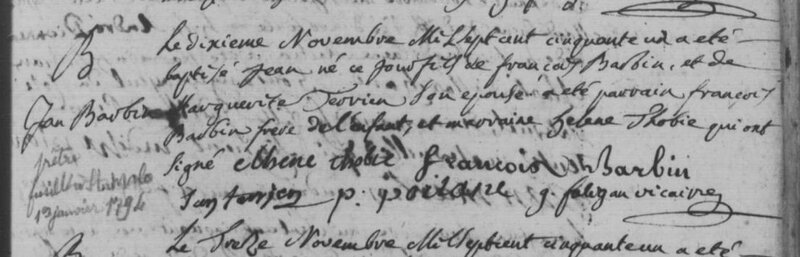 B
Le dixieme Novembre Mil Sept cent cinquante un a eté
baptisé Jean né ce jour fils de françois Barbin, et de
Jan Barbin
Marguerite Terrien Son epouse a eté parrain françois
Barbin frere de l'enfant, et marraine helene Thobie qui ont
signé elhene thobie françois Barbin
Jan terrien p. g. vicaire
prêtre
fusillé
1er janvier 1794
Le Treize Novembre Mil Sept cent cinquante un a eté